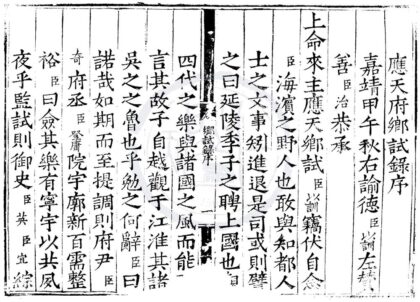 應天府鄉試錄序
嘉靖甲午秋右諭德臣以訓左贊
善臣治恭承
上命來主應天鄉試臣以訓竊伏自念
臣海濱之野人也敢與知都人
士之文事矧進退是司或則譬
之曰延陵季子之聘上國也自
鄉試錄序
一
四代之樂與諸國之風而能
言其故子自越觀于江淮其諸
吳之之魯也乎勉之何辭臣曰
諾哉如期而至提調則府尹臣
奇府丞臣院宇廓新百需整
裕臣曰僉其樂有寧宇以共夙
夜乎監試則御史臣英臣宜綜